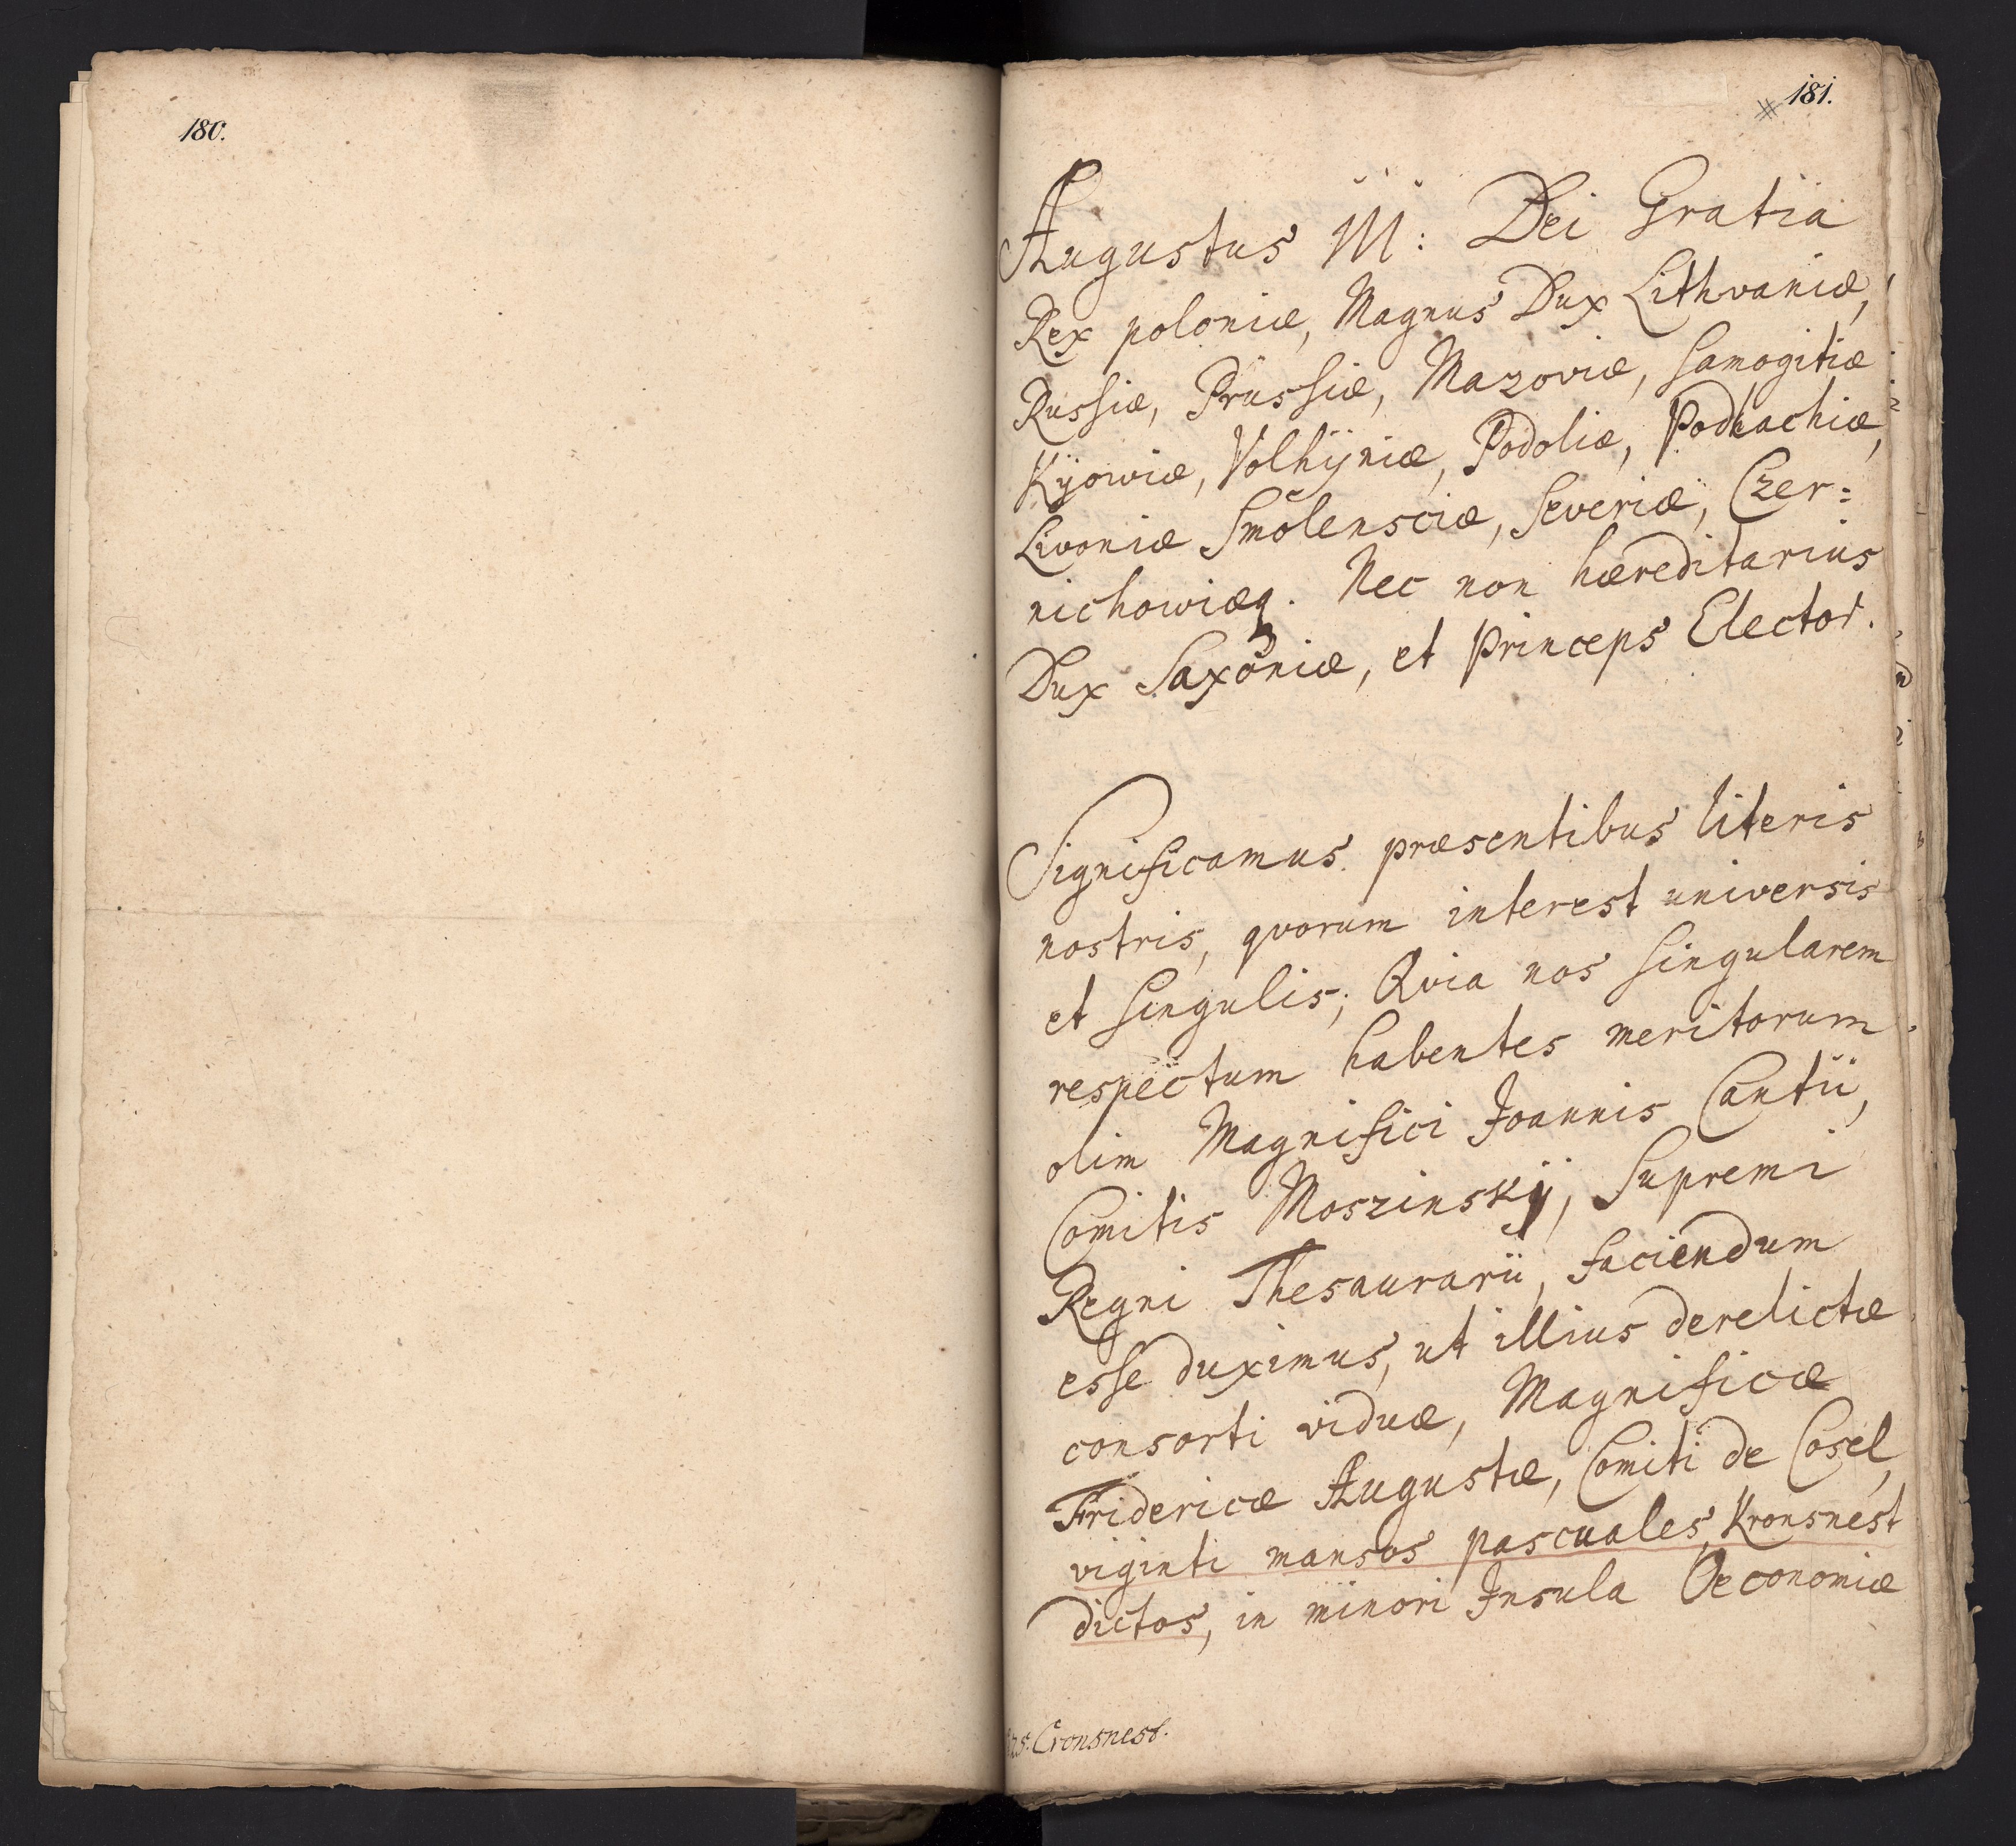 180.
181.
Augustus III: Dei Gratia
Rex poloniæ, Magnus Dux Lithvaniæ,
Russiæ, Prussiæ, Mazoviæ, Samogitiæ
Kÿowiæ, Volhÿniæ, Podoliæ, Podlachiæ,
Livoniæ Smolensciæ, Severiæ, Czer=
nichowiæq. Nec non hæreditarius
Dux Saxoniæ, et Princeps Elector.
Significamus præsentibus literis
nostris, qvorum interest universis
et singulis; Qvia nos singularem
respectum habentes meritorum
olim Magnifici Joannis Cantii,
Comitis Moszinskÿ, Supremi
Regni Thesaurarii, faciendum
esse duximus, ut illius derelictæ
consorti viduæ, Magnificæ
Fridericæ Augustæ, Comiti de Cosel,
viginti mansos pascuales, Kronsnest
dictos, in minori Insula Oeconomiæ
Cronsnest.